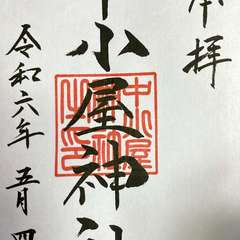 奉拝
中小屋神社
令和六年 五月 四
中小屋
神社
之印